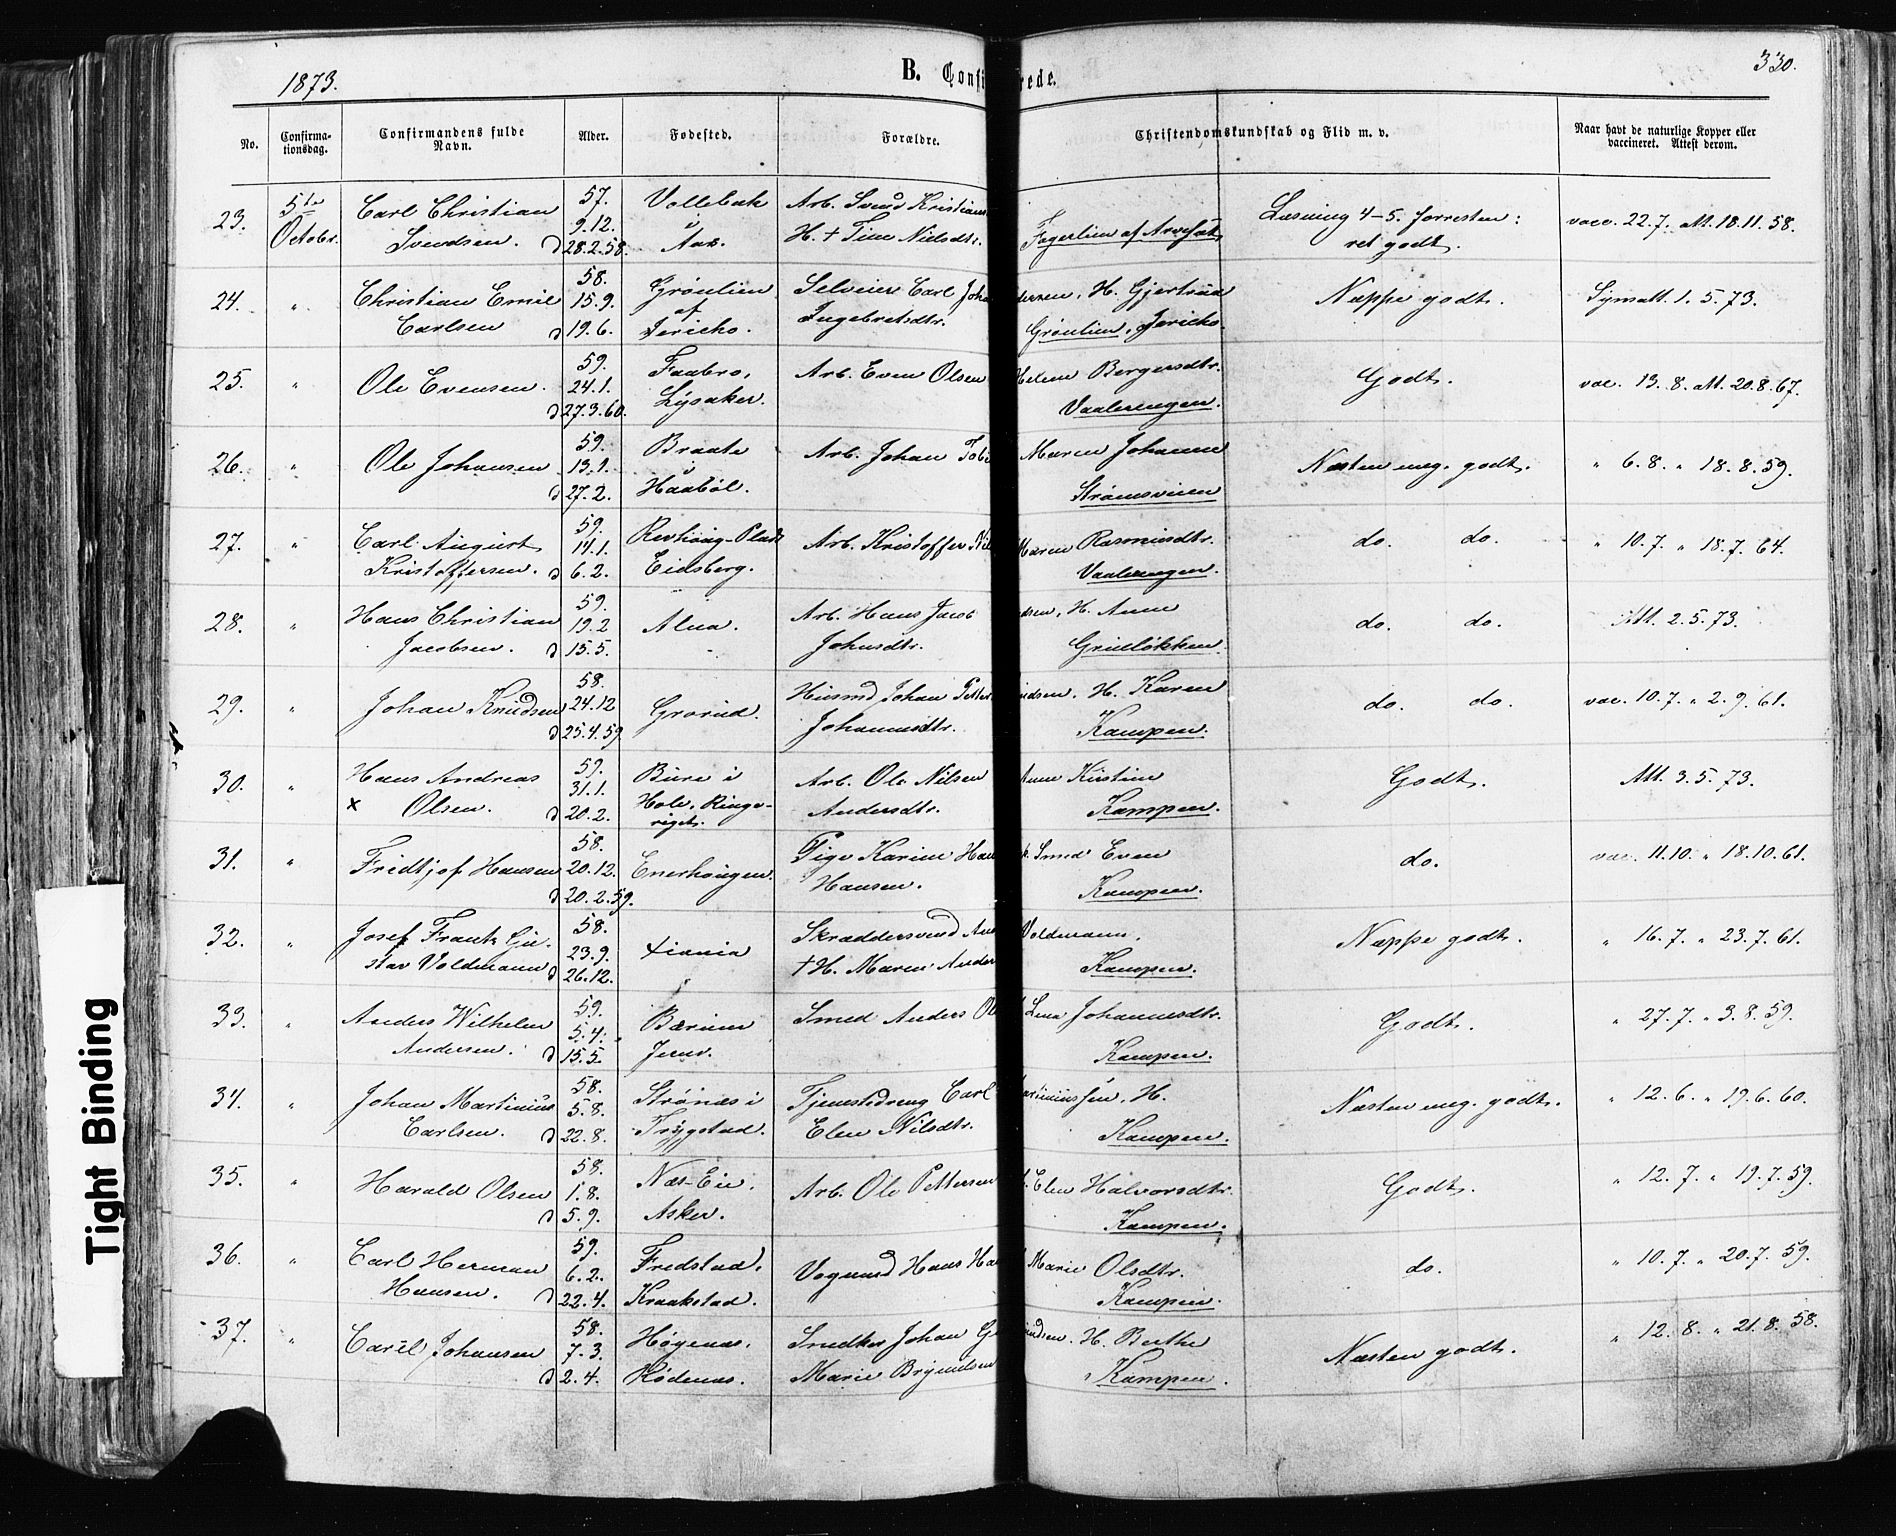 1873.
B. Confi rede.
330.
No.
Confirma-
tionsdag.
Confirmandens fulde
Navn.
Alder.
Fødested.
Forældre.
Christendomskundskab og Flid m. v.
Naar havt de naturlige Kopper eller
vaccineret. Attest derom.
23. 5te Octobr. Carl Christian Svendsen. 57. 9.12. d 28.2.58. Vollebæk i Aas. Arb. Svend Kristians H. + Tine Nielsdtr. Læsning 4-5. forresten: ret godt. vacc. 22.7. Att. 18.11.58.
24. " Christian Emil Carlsen 58. 15.9. d 19.6. Grønlien af Jericho. Selveier Carl Joha dersen, H. Gjertrud Ingebretsdtr. Grønlien, Jericho. Neppe godt. Symatt. 1.5.73.
25. " Ole Evensen. 59. 24.1. d 27.3.60. Faabro, Lysaker. Arb. Even Olsen Helene Bergersdtr. Vaalerengen. Godt. vac. 13.8. Att. 20.8.67.
26. " Ole Johansen 59. 13.1. d 27.2. Braate i Haabøl. Arb. Johan Tobi Maren Johanne Strømsveien Næsten meg. godt. " 6.8. " 18.8.59.
27. " Carl August Kristoffersen. 59. 14.1. d 6.2. Revhaug-Plads Eidsberg. Arb. Kristoffer Nil Maren Rasmusdtr. Vaalerengen. do. do. " 10.7. " 18.7.64.
28. " Hans Christian Jacobsen. 59. 19.2 d 15.5. Alna. Arb. Hans Jacob dsen, H. Anne Johnsdtr. Grueløkken. do. do. Att. 2.5.73.
29. " Johan Knudsen 58. 24.12 d 25.4.59. Grorud. Husmd Johan Petter udsen, H. Karen Johannesdtr. Kampen. do. do. vac. 10.7. " 2.9.61.
30. " Hans Andreas x Olsen. 59. 31.1. d 20.2. Bure i Hole, Ringe-riget. Arb. Ole Nilsen Anne Kirstine Andersdtr. Kampen. Godt. Att. 3.5.73.
31. " Fridtjof Hansen 58. 20.12. d 20.2.59. Enerhaugen. Pige Karine Han k. Smed Even Hansen. Kampen. do. vac. 11.10. " 18.10.61.
32. " Josef Frantz Gu-stav Voldmann 58. 23.9. d 26.12. Xiania Skræddersvend An Voldmann, + H. Maren Ander Kampen. Neppe godt. " 16.7. " 23.7.61.
33. " Anders Wilhelm Andersen. 59. 5.4. d 15.5. Bærum Jernv. Smed Anders Ol Lena Johannesdtr. Kampen. Godt. " 27.7. " 3.8.59.
34. " Johan Martinius Carlsen. 58. 5.8. d 22.8. Strønæs i Trygstad. Tjenestedreng Carl artiniussen, H. Elen Nilsdtr. Kampen. Næsten meg. godt. " 12.6. " 19.6.60.
35. " Harald Olsen 58. 1.8. d 5.9. Næs-Eie, Asker. Arb. Ole Pettersen Elen Halvorsdtr. Kampen. Godt. " 12.7. " 19.7.59.
36. " Carl Herman Hansen. 59. 6.2. d 22.4. Fredstad, Kraakstad. Vognmd Hans Ha Marie Olsdtr. Kampen. do. " 10.7. " 20.7.59.
37. " Carel Johansen 58. 7.3. d 2.4. Høgenæs, Rødenæs. Snedker Johan G undsen. H. Berthe Marie Bryndsen Kampen. Næsten godt. " 12.8. " 21.8.58.
Tight Binding